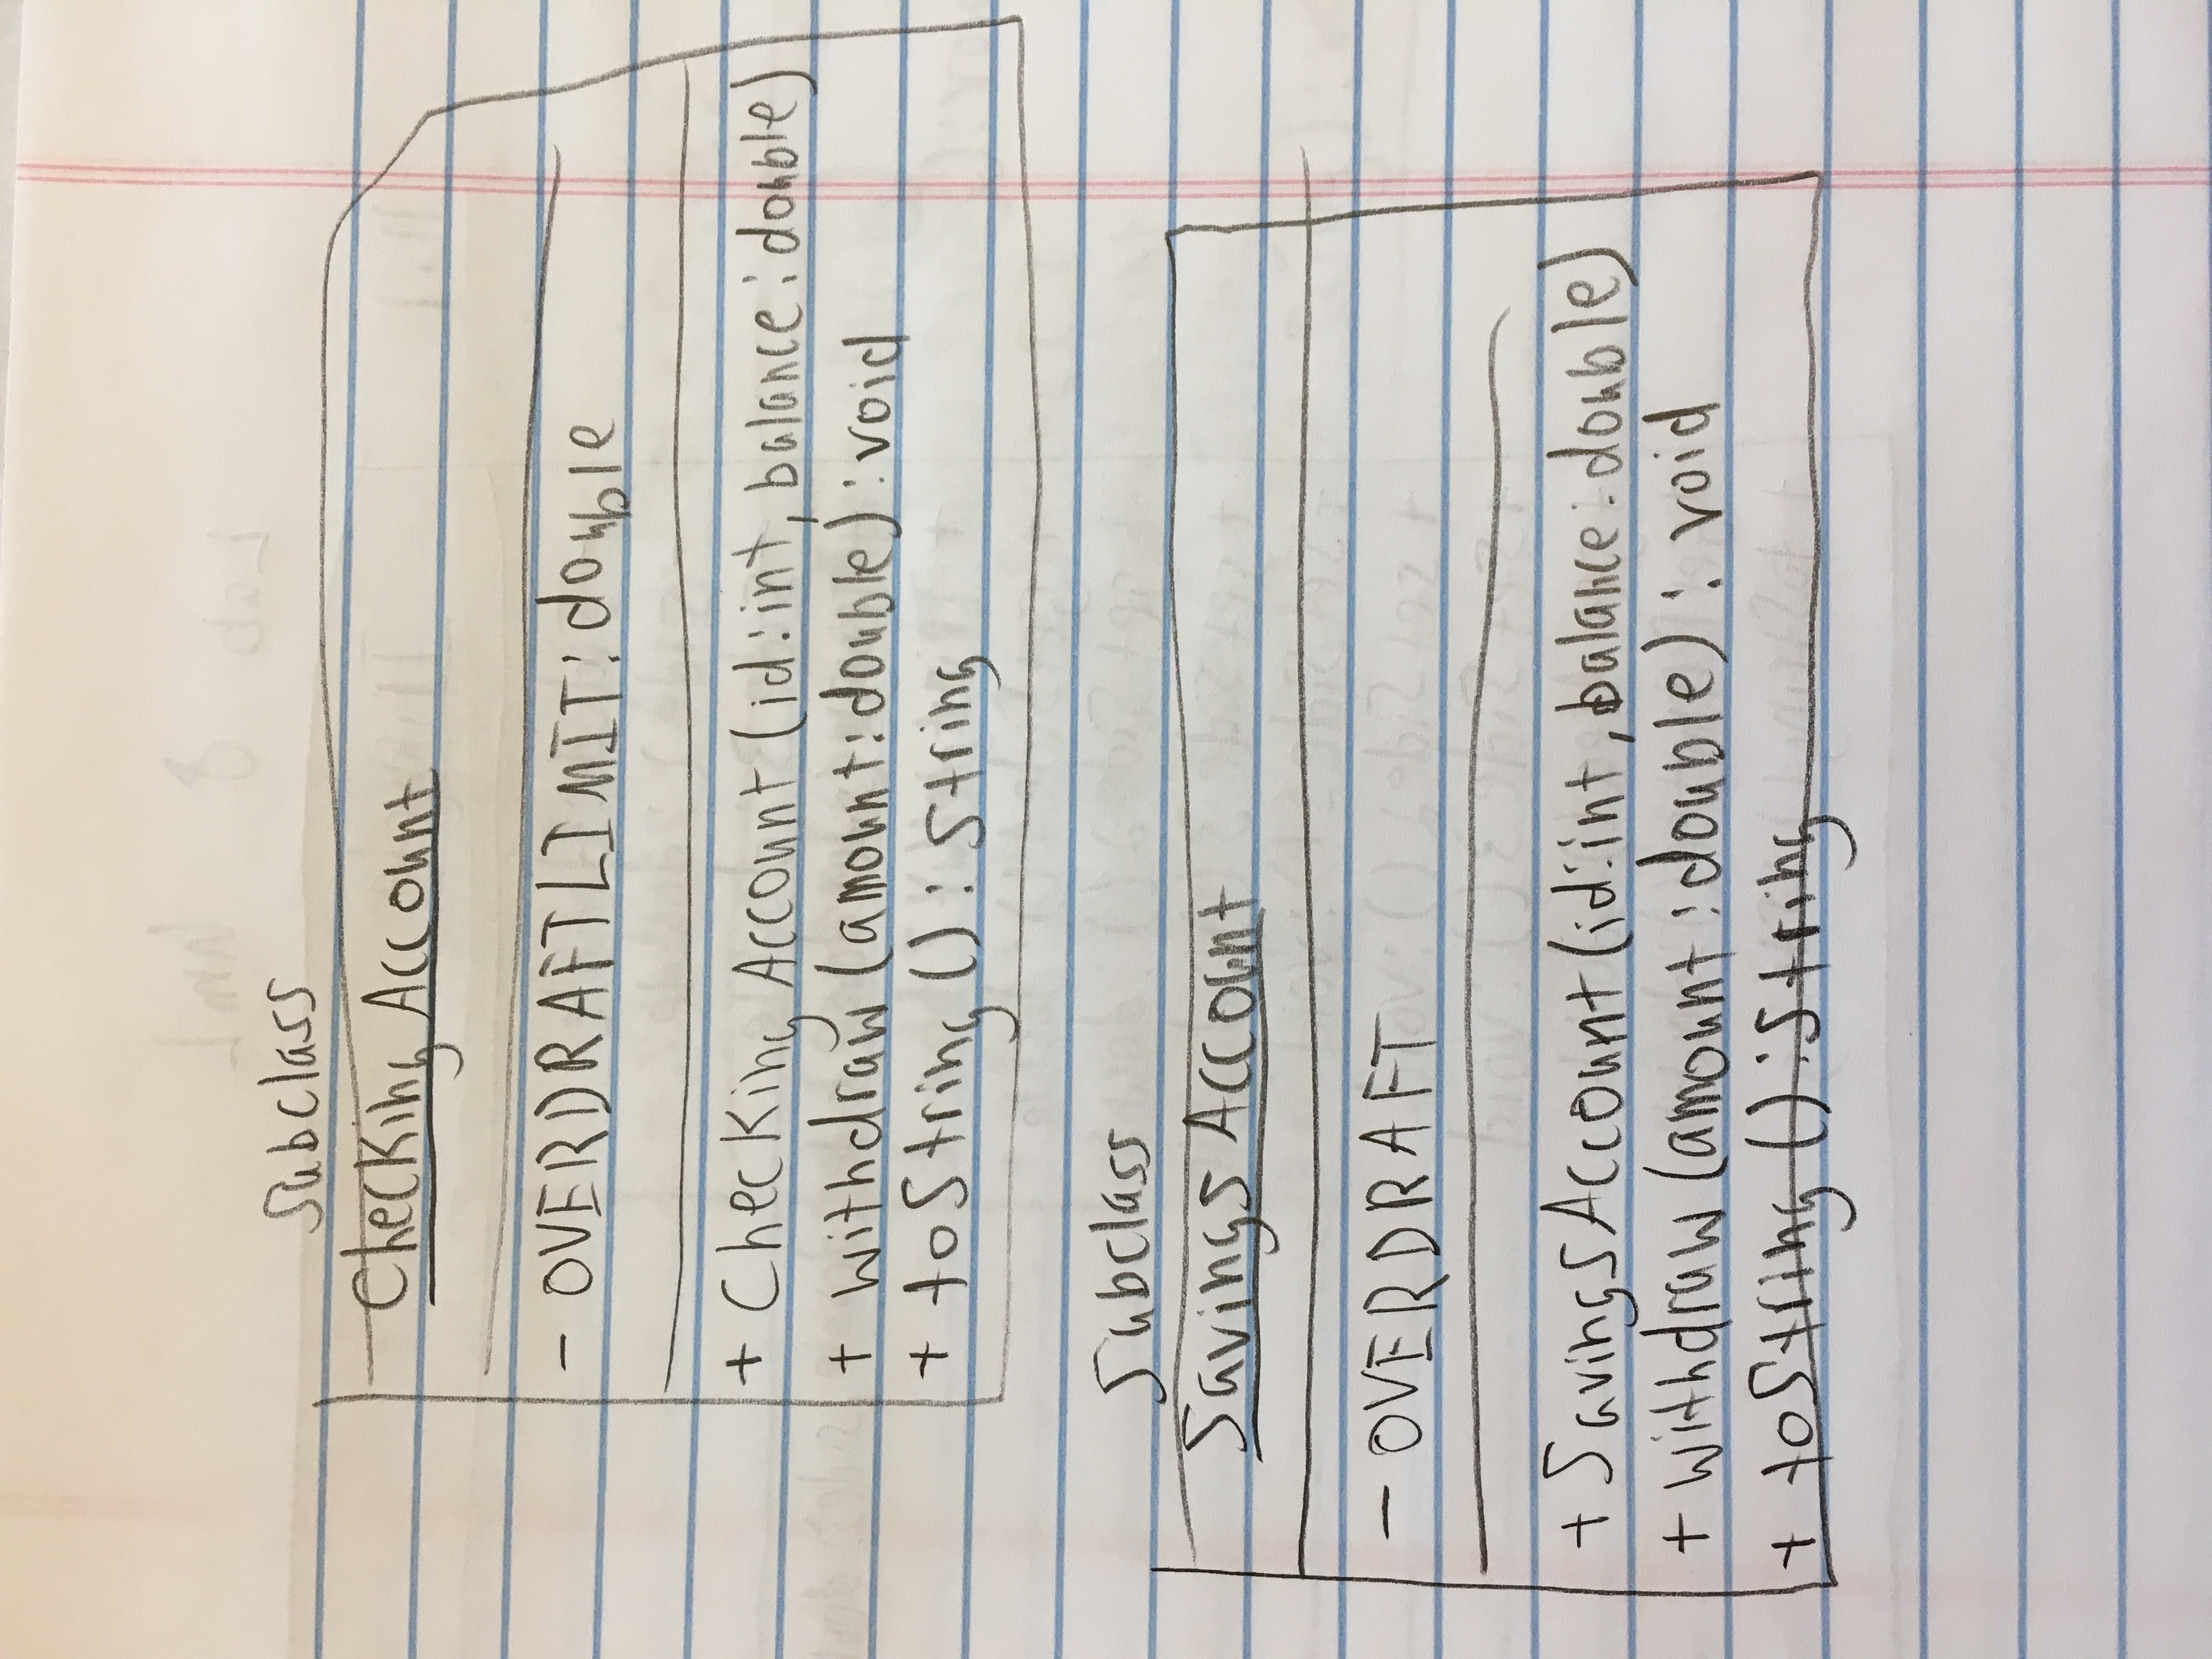 Subclass
Checking Account
- OVERDRAFTLIMIT: double
+ Checking Account (id: int, balance: double)
+ withdraw (amount: double) : void
+ toString () : String
Subclass
Savings Account
- OVERDRAFT
+ SavingsAccount (id: int, balance: double)
+ withdraw (amount : double) : void
+ toString () : String